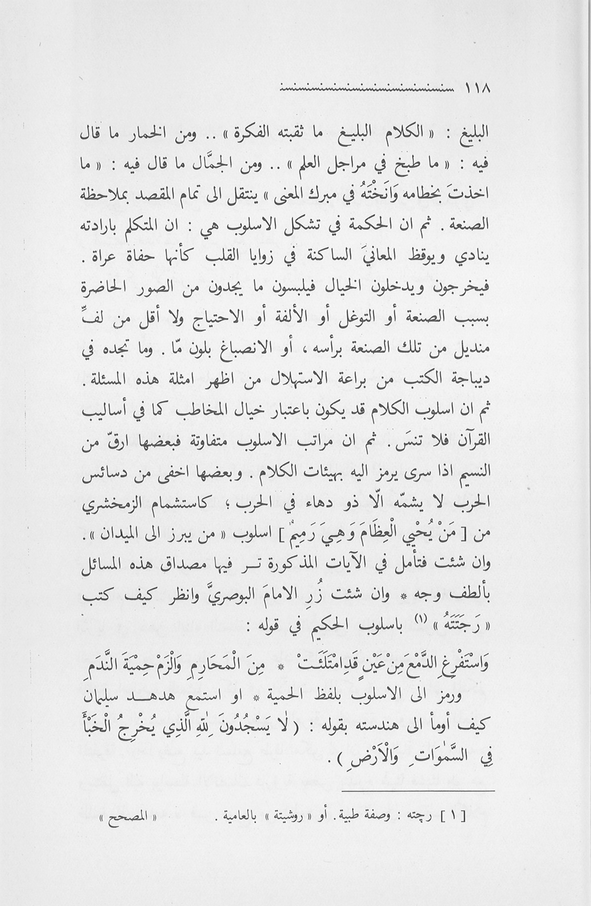 ١١٨
البليغ : « الكلام البليغ ما ثقبته الفكرة » .. ومن الخمار ما قال
فيه : « ما طبخ في مراجل العلم » .. ومن الجمَّال ما قال فيه : « ما
اخذتَ بخطامه وَانَخْتَهُ في مبرك المعنى » ينتقل الى تمام المقصد بملاحظة
الصنعة . ثم ان الحكمة في تشكل الاسلوب هي : ان المتكلم بارادته
ينادي ويوقظ المعانيَ الساكنة في زوايا القلب كأنها حفاة عراة .
فيخرجون ويدخلون الخيال فيلبسون ما يجدون من الصور الحاضرة
بسبب الصنعة أو التوغل أو الألفة أو الاحتياج ولا أقل من لفِّ
منديل من تلك الصنعة برأسه ، أو الانصباغ بلون مّا . وما تجده في
ديباجة الكتب من براعة الاستهلال من اظهر امثلة هذه المسئلة .
ثم ان اسلوب الكلام قد يكون باعتبار خيال المخاطب كما في أساليب
القرآن فلا تنسَ . ثم ان مراتب الاسلوب متفاوتة فبعضها ارقّ من
النسيم اذا سرى يرمز اليه بهيئات الكلام . وبعضها اخفى من دسائس
الحرب لا يشمّه الّا ذو دهاء في الحرب ؛ كاستشمام الزمخشري
من [ مَنْ يُحْيِي الْعِظَامَ وَهِيَ رَمِيمٌ ] اسلوب « من يبرز الى الميدان » .
وان شئت فتأمل في الآيات المذكورة تر فيها مصداق هذه المسائل
بألطف وجه * وان شئت زُرِ الامامَ البوصريَّ وانظر كيف كتب
« رَجَتَتَهُ » (١) باسلوب الحكيم في قوله :
وَاسْتَفْرِغِ الدَّمْعَ مِنْ عَيْنٍ قَدِ امْتَلَئَتْ * مِنَ الْمَحَارِمِ وَالْزَمْ حِمْيَةَ النَّدَمِ
ورمز الى الاسلوب بلفظ الحمية * او استمع هدهد سليمان
كيف أومأ الى هندسته بقوله : ( لَا يَسْجُدُونَ لِلّٰهِ الَّذِي يُخْرِجُ الْخَبْأَ
فِي السَّمٰوَاتِ وَالْاَرْضِ ) .
[ ١ ] رچته : وصفة طبية . أو « روشيتة » بالعامية . « المصحح »